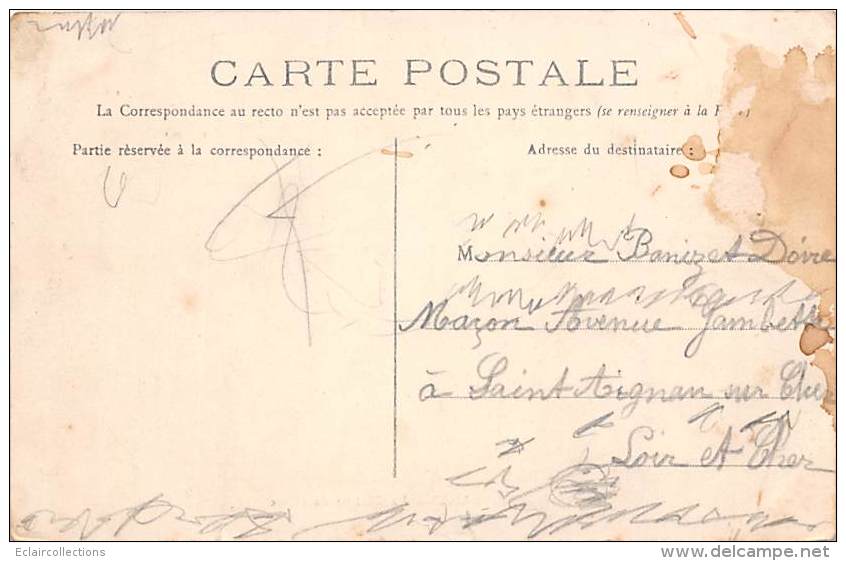 CARTE POSTALE
La Correspondance au recto n'est pas acceptée par tous les pays étrangers (se renseigner à la
Partie rèservée à la correspondance :
Adresse du destinataire :
Monsieur Banizet Doire
Maçon Avenue Gambetta
à Saint Aignan sur Cher
Loir et Cher
Eclaircollections
www.delcampe.net